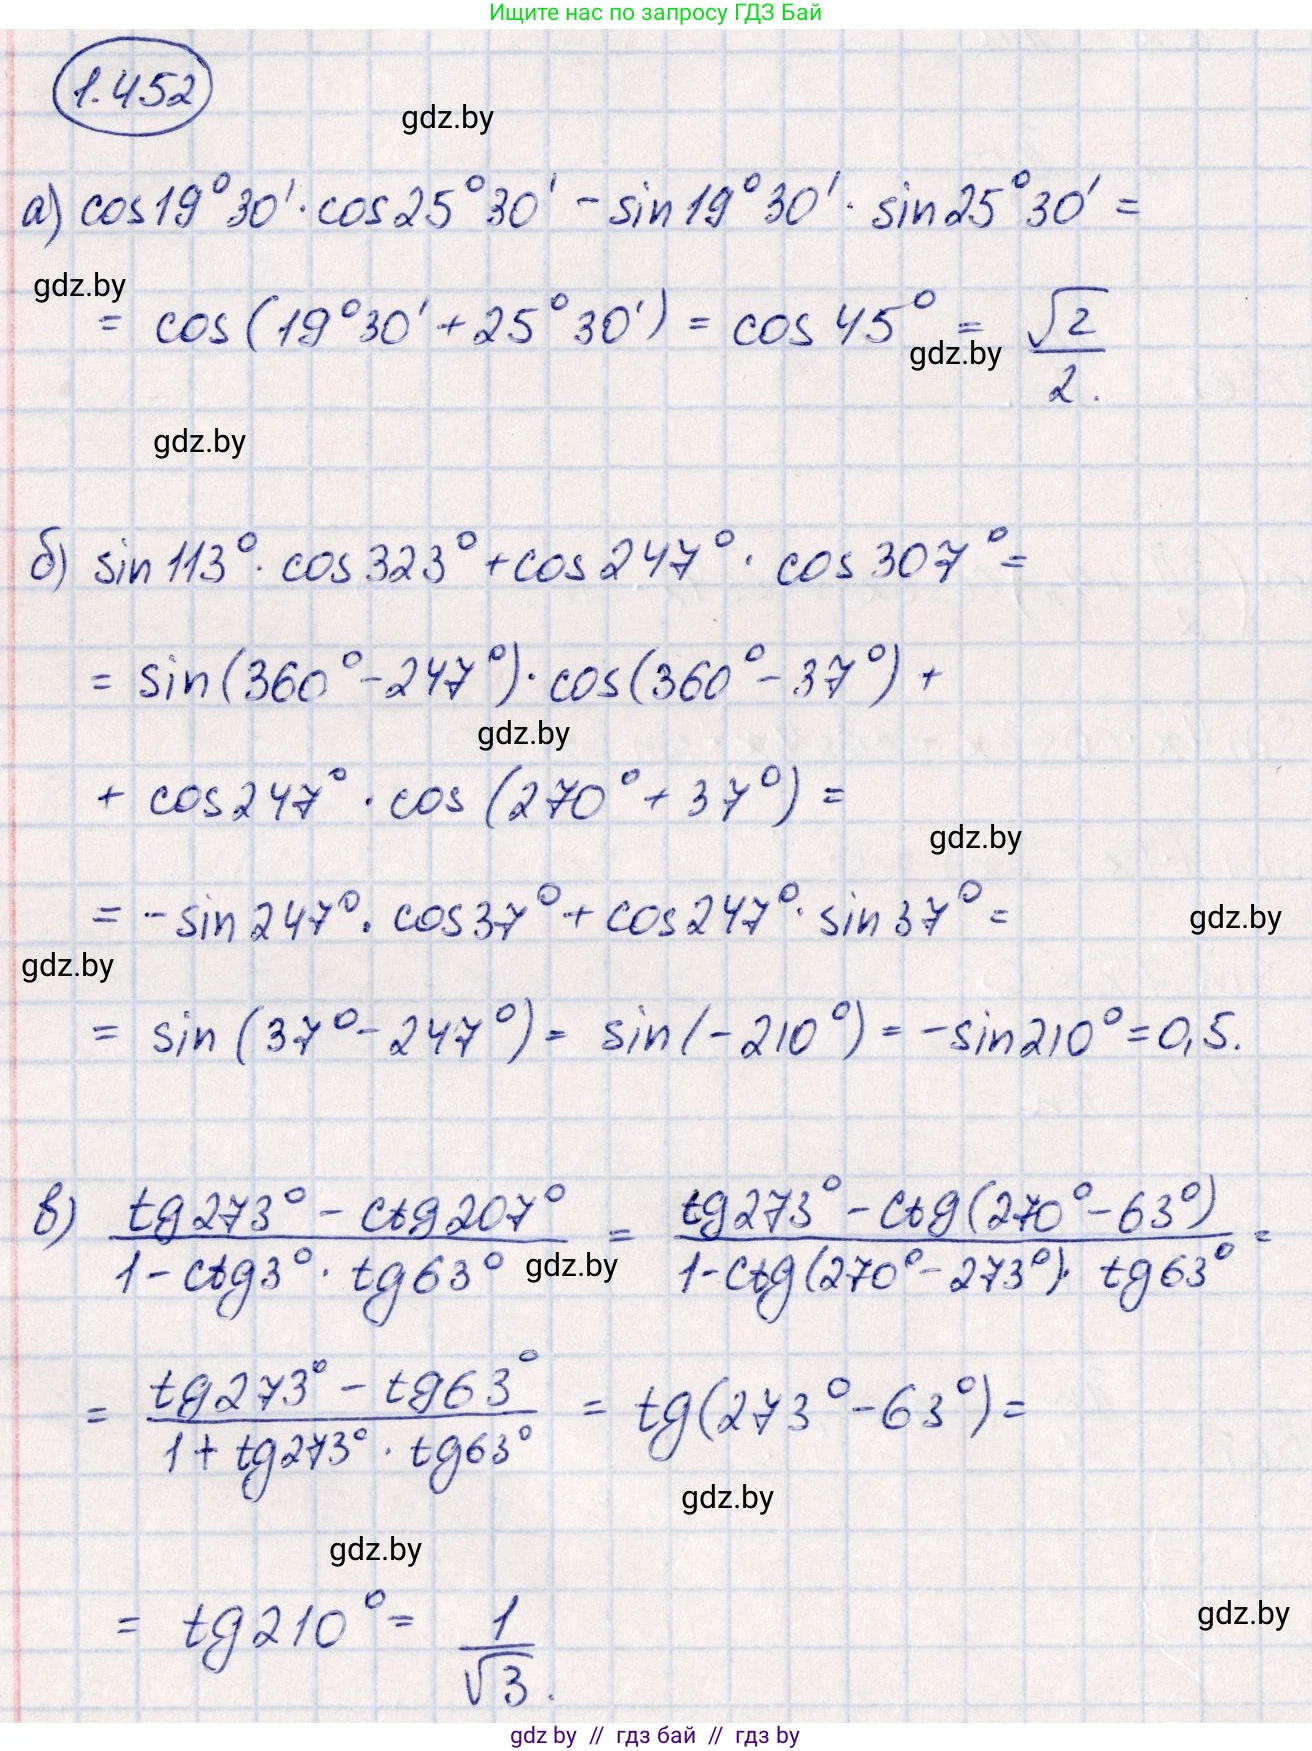 Ищите нас по запросу ГДЗ Бай
1.452
gdz.by
а) cos19°30'·cos25°30' - sin19°30'· sin25°30' =
gdz.by
= cos(19°30'+25°30') = cos45° = √2/2.
gdz.by
gdz.by
б) sin113°· cos323°+cos247°· cos307°=
= sin(360°-247°)· cos(360°-37°) +
gdz.by
+ cos247°· cos(270°+37°) =
gdz.by
= -sin247°· cos37°+cos247°· sin37°=
gdz.by
gdz.by
= sin(37°-247°)= sin(-210°)= -sin210°=0,5.
в) (tg273° - ctg207°)/(1 - ctg3°· tg63°) = (tg273° - ctg(270°-63°))/(1-ctg(270°-273°)· tg63°) =
gdz.by
= (tg273° - tg63°)/(1+tg273°· tg63°) = tg(273°-63°)=
gdz.by
gdz.by
= tg210°= 1/√3.
gdz.by
gdz by // гдз бай // гдз by